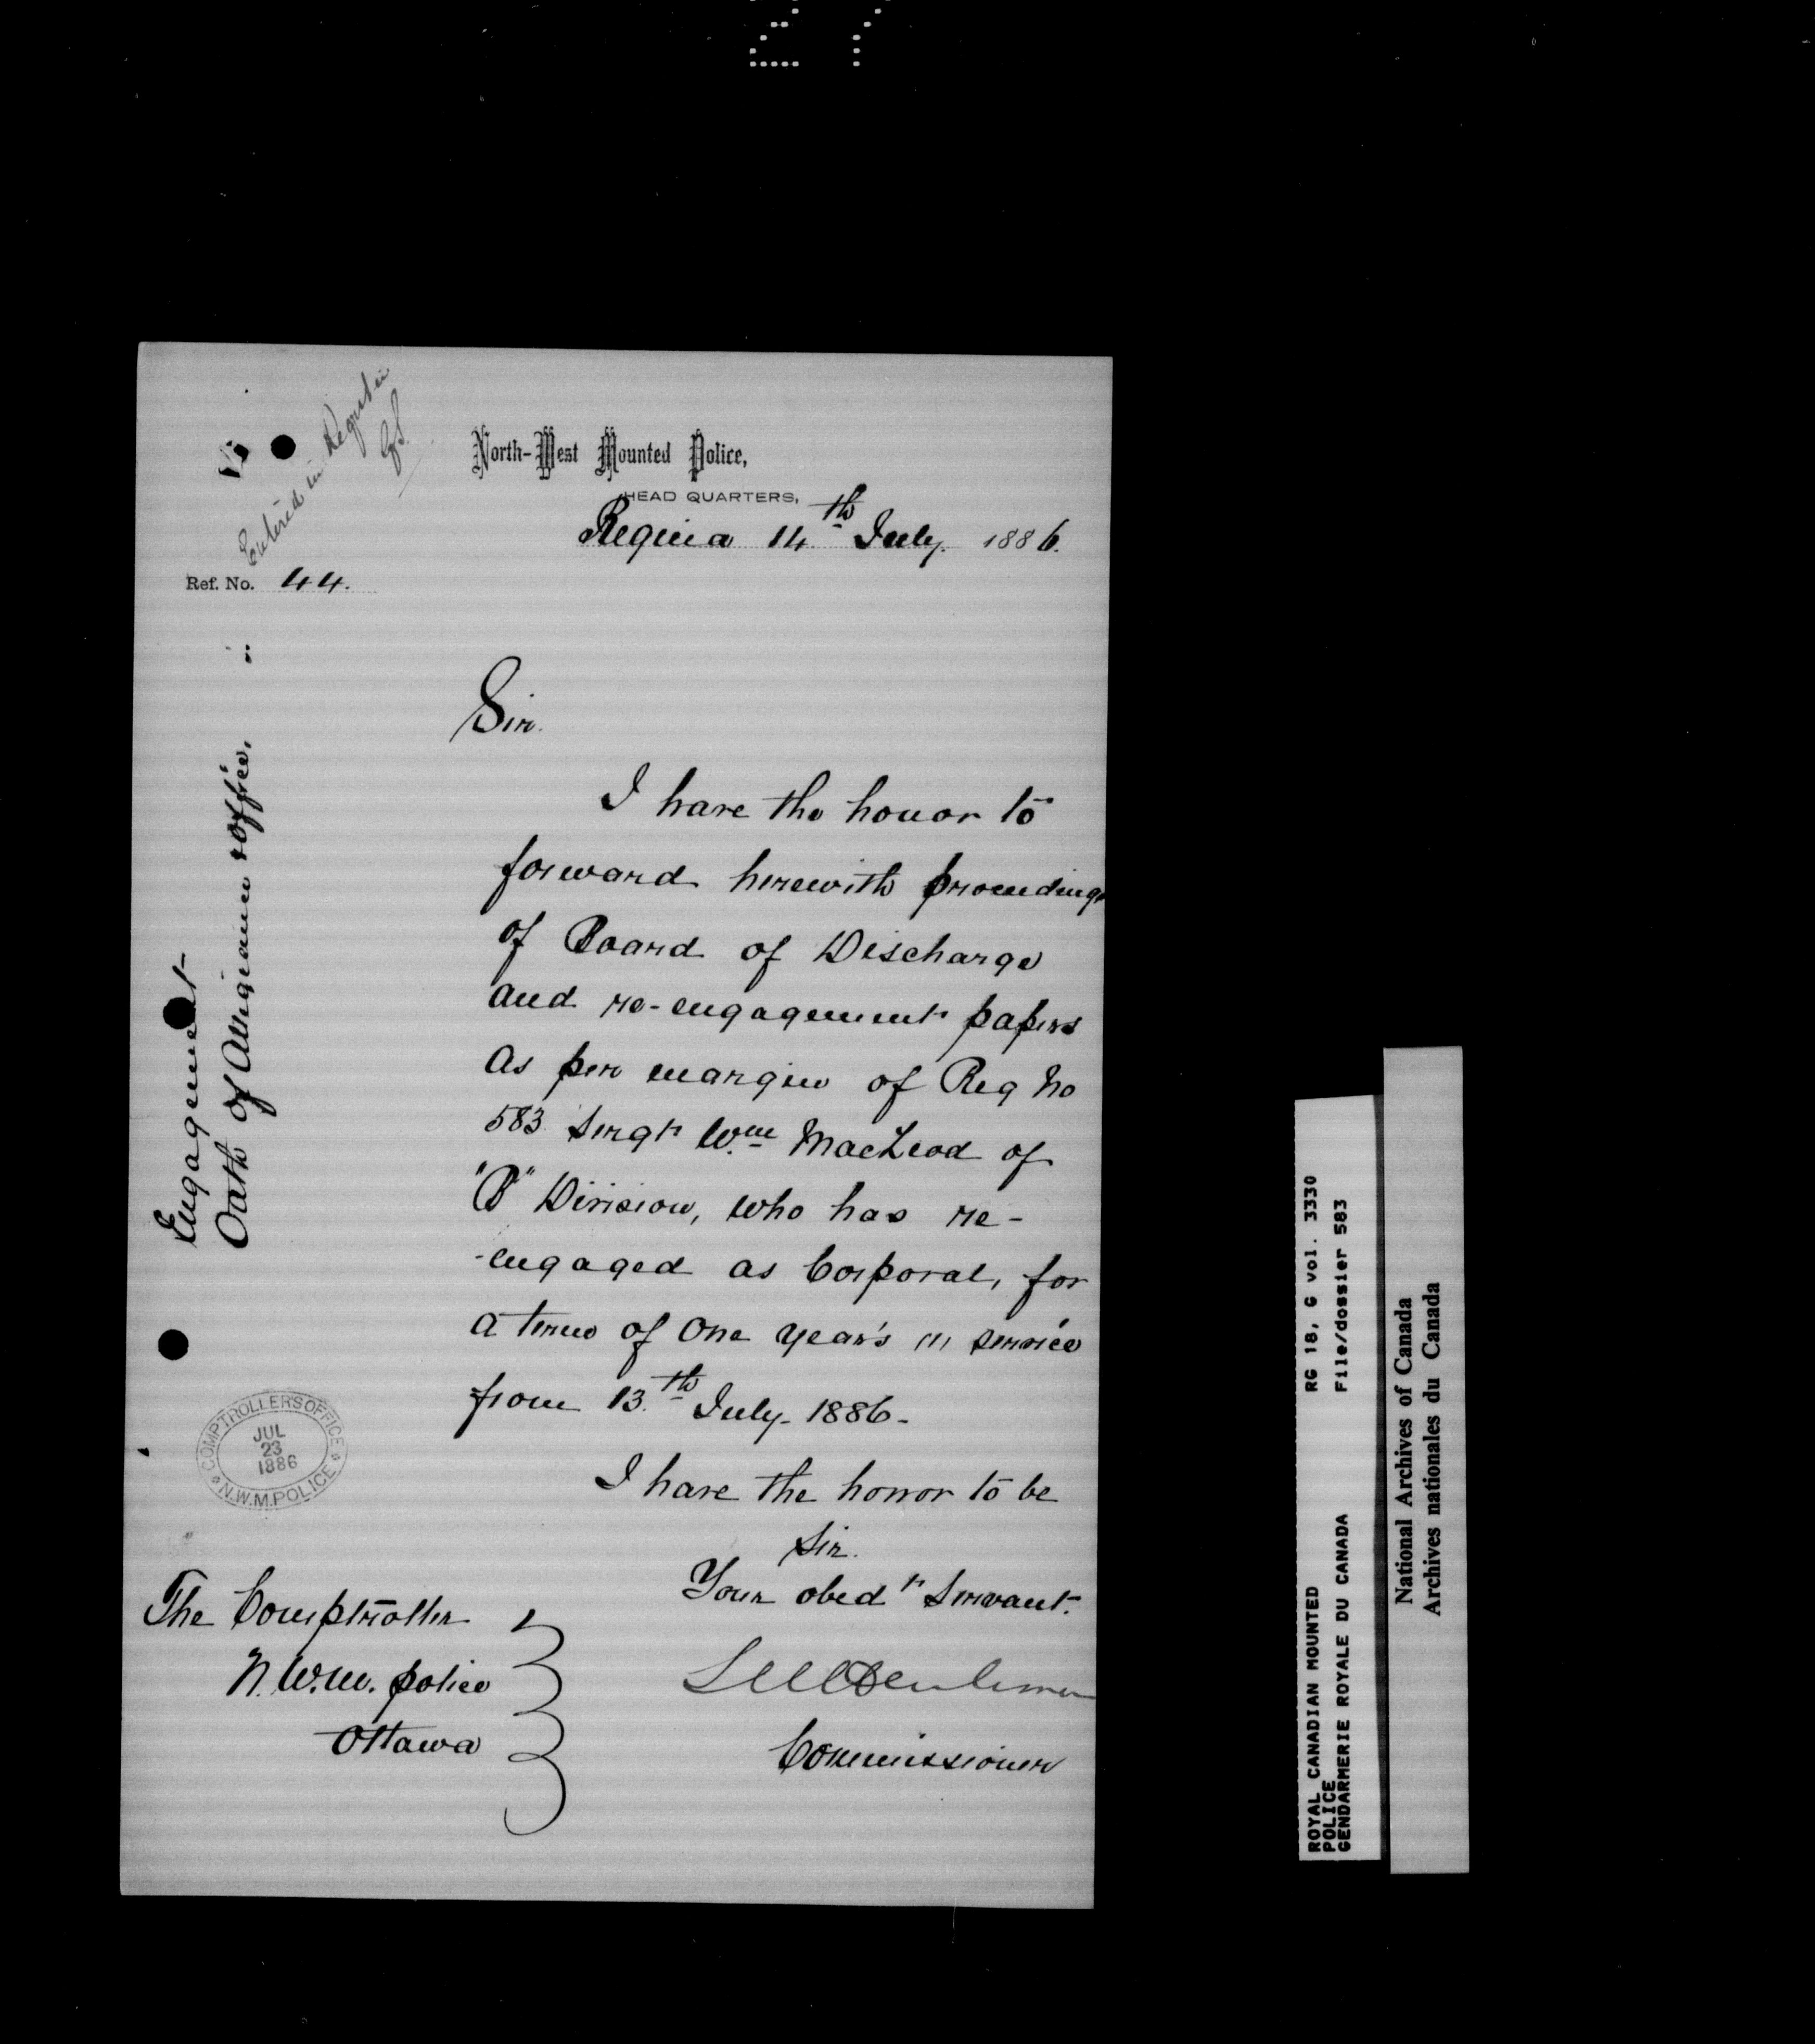 27
Entered in Register
North-West Mounted Police,
HEAD QUARTERS,
Regina 14th July. 1886.
Ref. No. 44.
Engagement
Oath of Allegiance & office.
Sir.
I have the honor to
forward herewith proceedings
of Board of Discharge
and re-engagement papers
as per margin of Reg No
583 Sergt Wm MacLeod of
"B" Division, who has re-
-engaged as Corporal, for
a term of One Year's (1) service
from 13th July. 1886-
I have the honor to be
Sir.
Your obedt Servant.
Commissioner
The Comptroller
N.W.M. police
Ottawa
COMPTROLLER'S OFFICE
JUL
23
1886
N.W.M.POLICE
ROYAL CANADIAN MOUNTED RG 18, G vol. 3330
POLICE
GENDARMERIE ROYALE DU CANADA File/dossier 583
National Archives of Canada
Archives nationales du Canada